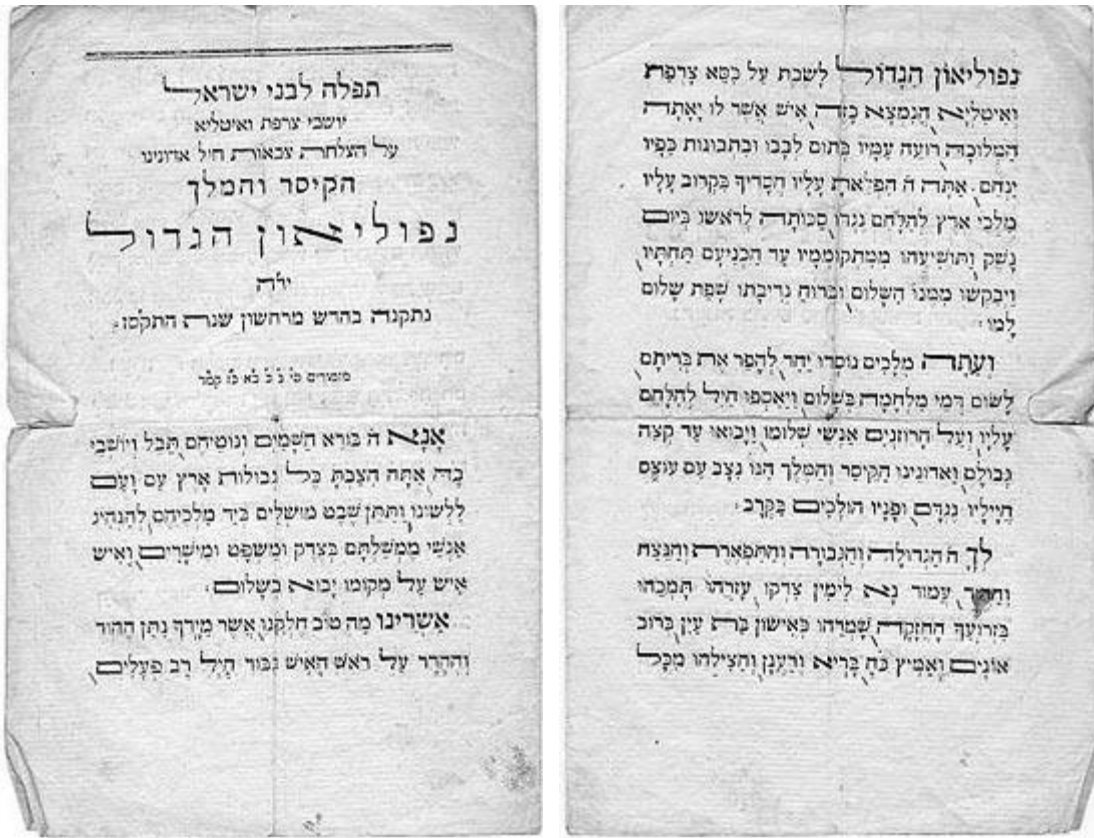 תפלה לבני ישראל
יושבי צרפת ואיטליא
על הצלחת צבאות חיל אדונינו
הקיסר והמלך
נפוליאון הגדול
יל״ה
נתקנה בחדש מרחשון שנת התקסז׃
מזמורים כ׳ כ״א כ״ז קמ״ד
אָנָא ה׳ בּוֹרֵא הַשָּׁמַיִם וְנוֹטֵיהֶם תֵּבֵל וְיוֹשְׁבֵי
בָהּ, אַתָּה הִצַּבְתָּ כָּל גְּבוּלוֹת אָרֶץ עַם וָעָם
לִלְשׁוֹנוֹ וַתִּתֵּן שֵׁבֶט מוֹשְׁלִים בְּיַד מַלְכֵיהֶם, לְהַנְהִיג
אַנְשֵׁי מֶמְשַׁלְתָּם בְּצֶדֶק וּמִשְׁפָּט וּמֵישָׁרִים, וְאִישׁ
אִישׁ עַל מְקוֹמוֹ יָבוֹא בְשָׁלוֹם׃
אַשְׁרֵינוּ מַה טּוֹב חֶלְקֵנוּ, אֲשֶׁר מִיָּדְךָ נִתַּן הַהוֹד
וְהֶהָדָר עַל רֹאשׁ הָאִישׁ גִּבּוֹר חַיִל רַב פְּעָלִים,
נַפּוֹלֵיאוֹן הַגָּדוֹל לָשֶׁבֶת עַל כִּסֵּא צָרְפַת
וְאִיטַלְיָא, הֲנִמְצָא כָזֶה, אִישׁ אֲשֶׁר לוֹ יָאֲתָה
הַמְּלוּכָה, רוֹעֶה עַמָּיו כְּתוֹם לְבָבוֹ וּבִתְבוּנוֹת כַּפָּיו
יַנְחֵם. אַתָּה ה׳ הִפְלֵאתָ עָלָיו חֲסָדֶיךָ בִּקְרוֹב עָלָיו
מַלְכֵי אֶרֶץ לְהִלָּחֵם נֶגְדּוֹ, סַכּוֹתָה לְרֹאשׁוֹ בְּיוֹם
נָשֶׁק וְתוֹשִׁיעֵהוּ מִמִּתְקוֹמְמָיו עַד הִכְנִיעָם תַּחְתָּיו,
וַיְבַקְשׁוּ מִמֶּנּוּ הַשָּׁלוֹם וּבְרוּחַ נְדִיבָתוֹ שָׁפַת שָׁלוֹם
לָמוֹ׃
וְעַתָּה מְלָכִים נוֹסְדוּ יַחַד, לְהָפֵר אֶת בְּרִיתָם
לָשׂוּם דְּמֵי מִלְחָמָה בְּשָׁלוֹם, וַיֵּאָסְפוּ חַיִל לְהִלָּחֵם
עָלָיו וְעַל הָרוֹזְנִים אַנְשֵׁי שְׁלוֹמוֹ, וַיָּבוֹאוּ עַד קְצֵה
גְבוּלָם, וַאדוֹנֵינוּ הַקֵּיסָר וְהַמֶּלֶךְ הִנּוֹ נִצָּב עִם עוֹצֶם
חֲיָילָיו נֶגְדָּם, וּפָנָיו הוֹלְכִים בַּקְרָב׃
לְךָ ה׳ הַגְּדוּלָּה וְהַגְּבוּרָה וְהַתִּפְאֶרֶת וְהַנֵּצַח
וְהַהוֹד, עֲמוֹד נָא לִימִין צִדְקוֹ, עָזְרֵהוּ תָּמְכֵהוּ
בִּזְרוֹעֲךָ הַחֲזָקָה, שָׁמְרֵהוּ כְּאִישׁוֹן בַּת עָיִן, בְּרוֹב
אוֹנִים וְאַמִּיץ כֹּחַ, בָּרִיא וְרַעֲנָן, וְהַצִּילֵהוּ מִכָּל